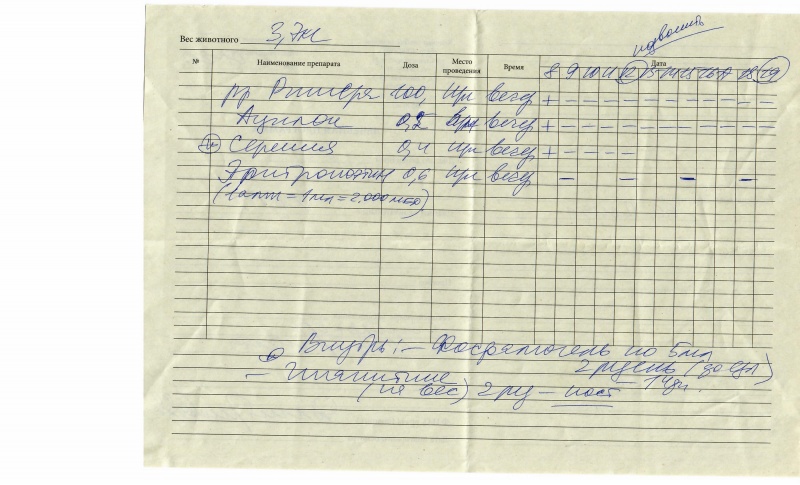 позвонить
Вес животного 3,7кг
№ Наименование препарата Доза Место проведения Время Дата
8 9 10 11 12 13 14 15 16 17 18 19
рр Рингера 100, вечер + – – – – – – – – – – –
0,2 вечер + – – – – – – – – – – –
Серения 0,4 вечер + – – – –
Эритропоэтин 0,6 вечер – – – –
= 1мл = 2.000
Внутрь: – Фосфалюгель по 5мл
2 р/день (до еды)
– 14дн
– Ипакитине
(на вес) 2 р/д – пост